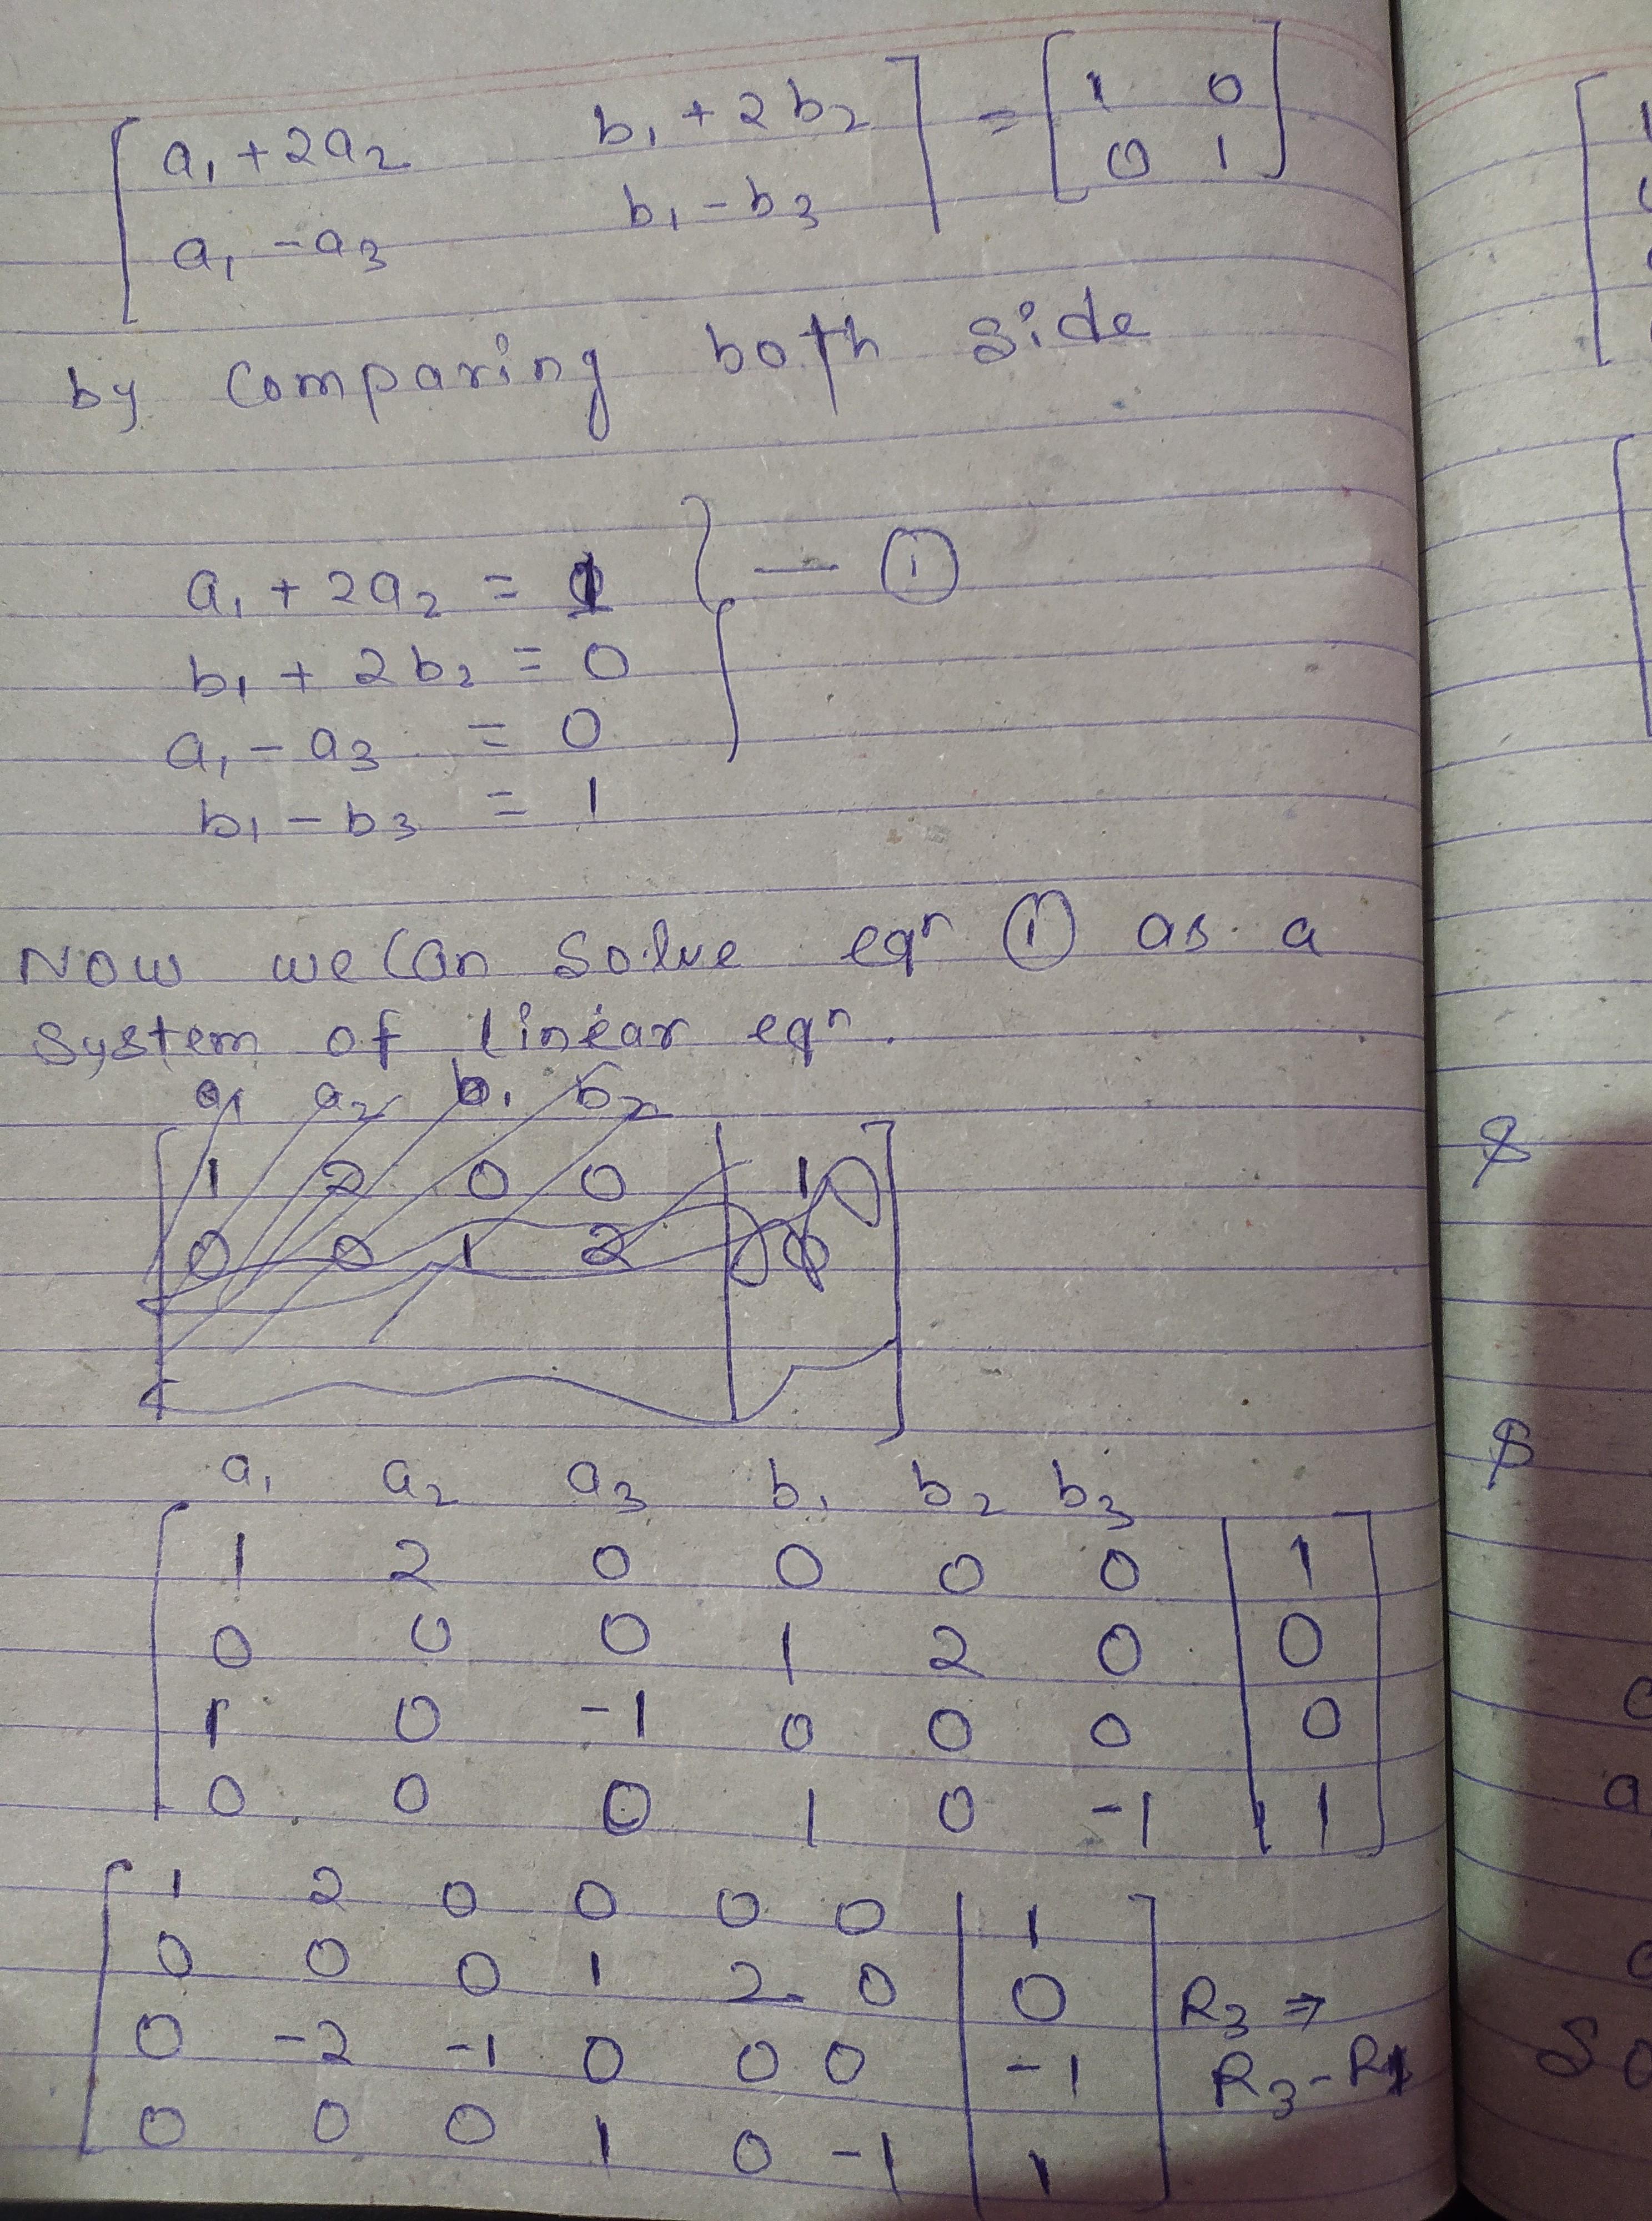 [ a₁ + 2a₂   b₁ + 2b₂ ] = [ 1 0 ]
[ a₁ - a₃   b₁ - b₃ ]   [ 0 1 ]
by Comparing both side
a₁ + 2a₂ = 1 } — ①
b₁ + 2b₂ = 0
a₁ - a₃ = 0
b₁ - b₃ = 1
Now we Can Solve eqn ① as a
System of linear eqn.
a₁ a₂ b₁ b₂
1 2 0 0 | 1
0 0 1 2 | 0
a₁ a₂ a₃ b₁ b₂ b₃
1 2 0 0 0 0 | 1
0 0 0 1 2 0 | 0
1 0 -1 0 0 0 | 0
0 0 0 1 0 -1 | 1
1 2 0 0 0 0 | 1
0 0 0 1 2 0 | 0   R₃ ⇒
0 -2 -1 0 0 0 | -1   R₃ - R₁
0 0 0 1 0 -1 | 1